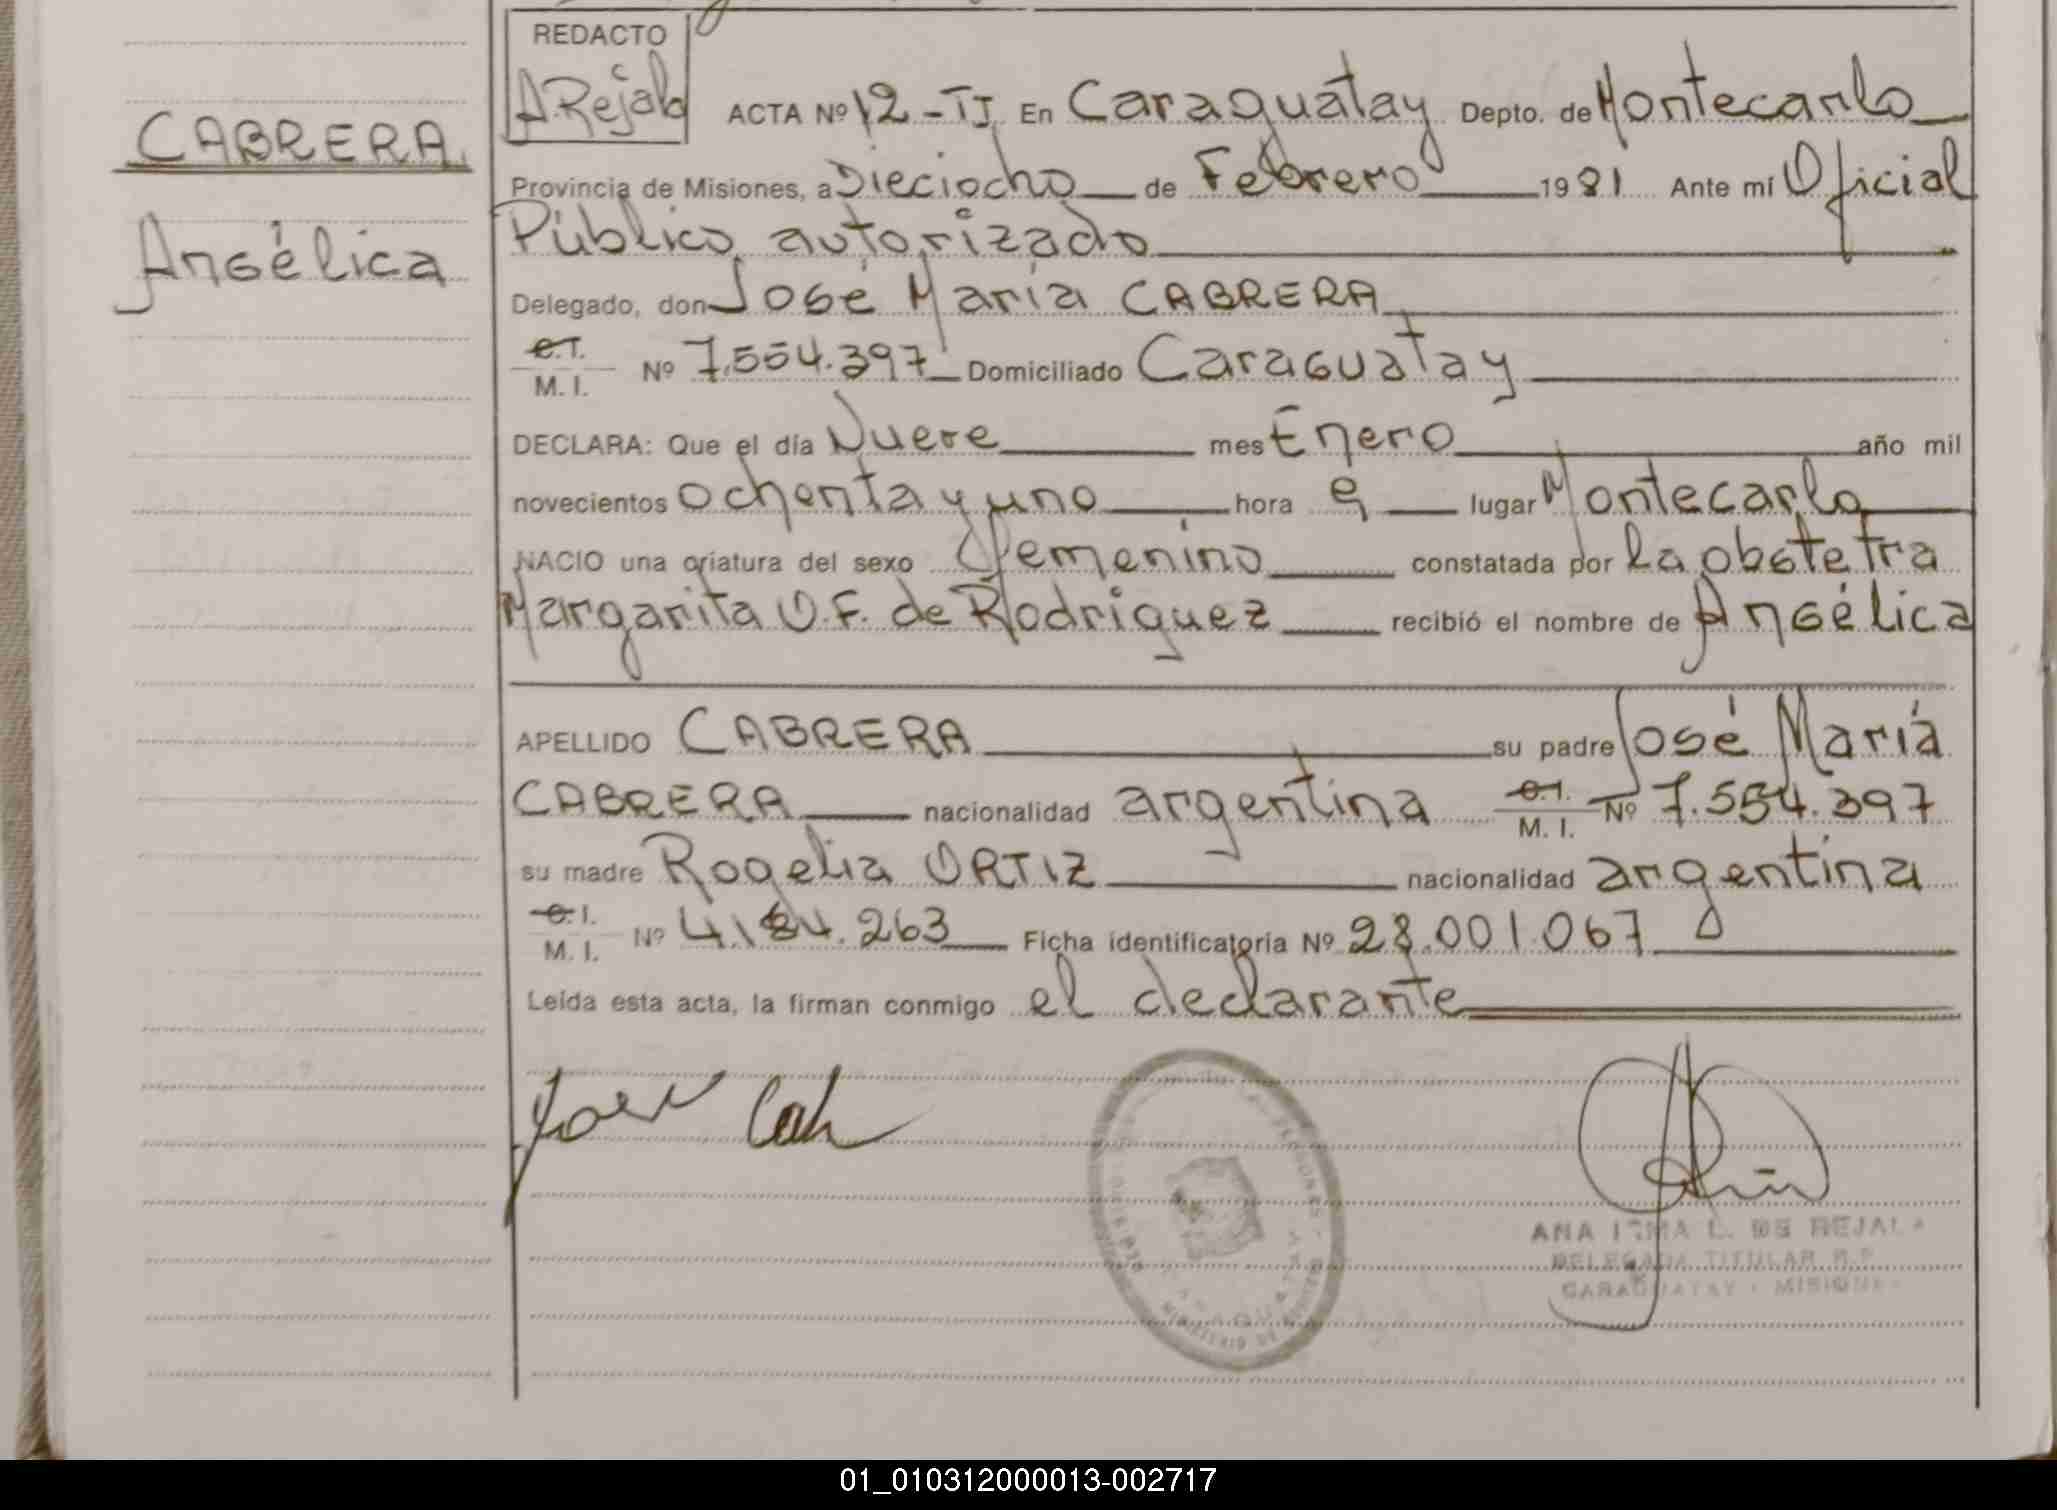 REDACTO
A.Rejala ACTA Nº 12-TI En Caraguatay Depto. de Montecarlo
CABRERA
Provincia de Misiones, a Dieciocho de Febrero 1981 Ante mí Oficial
Público autorizado
Angélica
Delegado, don José María CABRERA
C.I. M. I. Nº 7.554.397 Domiciliado Caraguatay
DECLARA: Que el día Nueve mes Enero año mil
novecientos ochenta y uno hora 9 lugar Montecarlo
NACIO una criatura del sexo femenino constatada por La obstetra
Margarita O.F. de Rodriguez recibió el nombre de Angélica
APELLIDO CABRERA su padre José María
CABRERA nacionalidad argentina C.I. M. I. Nº 7.554.397
su madre Rogelia ORTIZ nacionalidad argentina
C.I. M. I. Nº 4.184.263 Ficha identificatoria Nº 28.001.067
Leída esta acta, la firman conmigo el declarante
ANA IRMA L. DE REJALA
DELEGADA TITULAR R.P.
CARAGUATAY - MISIONES
01_010312000013-002717